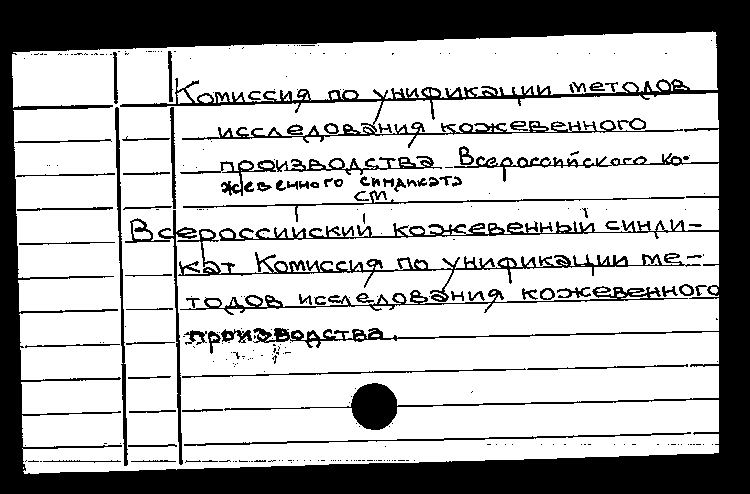 Комиссия по унификации методов
исследования кожевенного
производства Всероссийского ко-
жевенного синдиката
см.
Всероссийский кожевенный синди-
кат Комиссия по унификации ме-
тодов исследования кожевенного
производства.